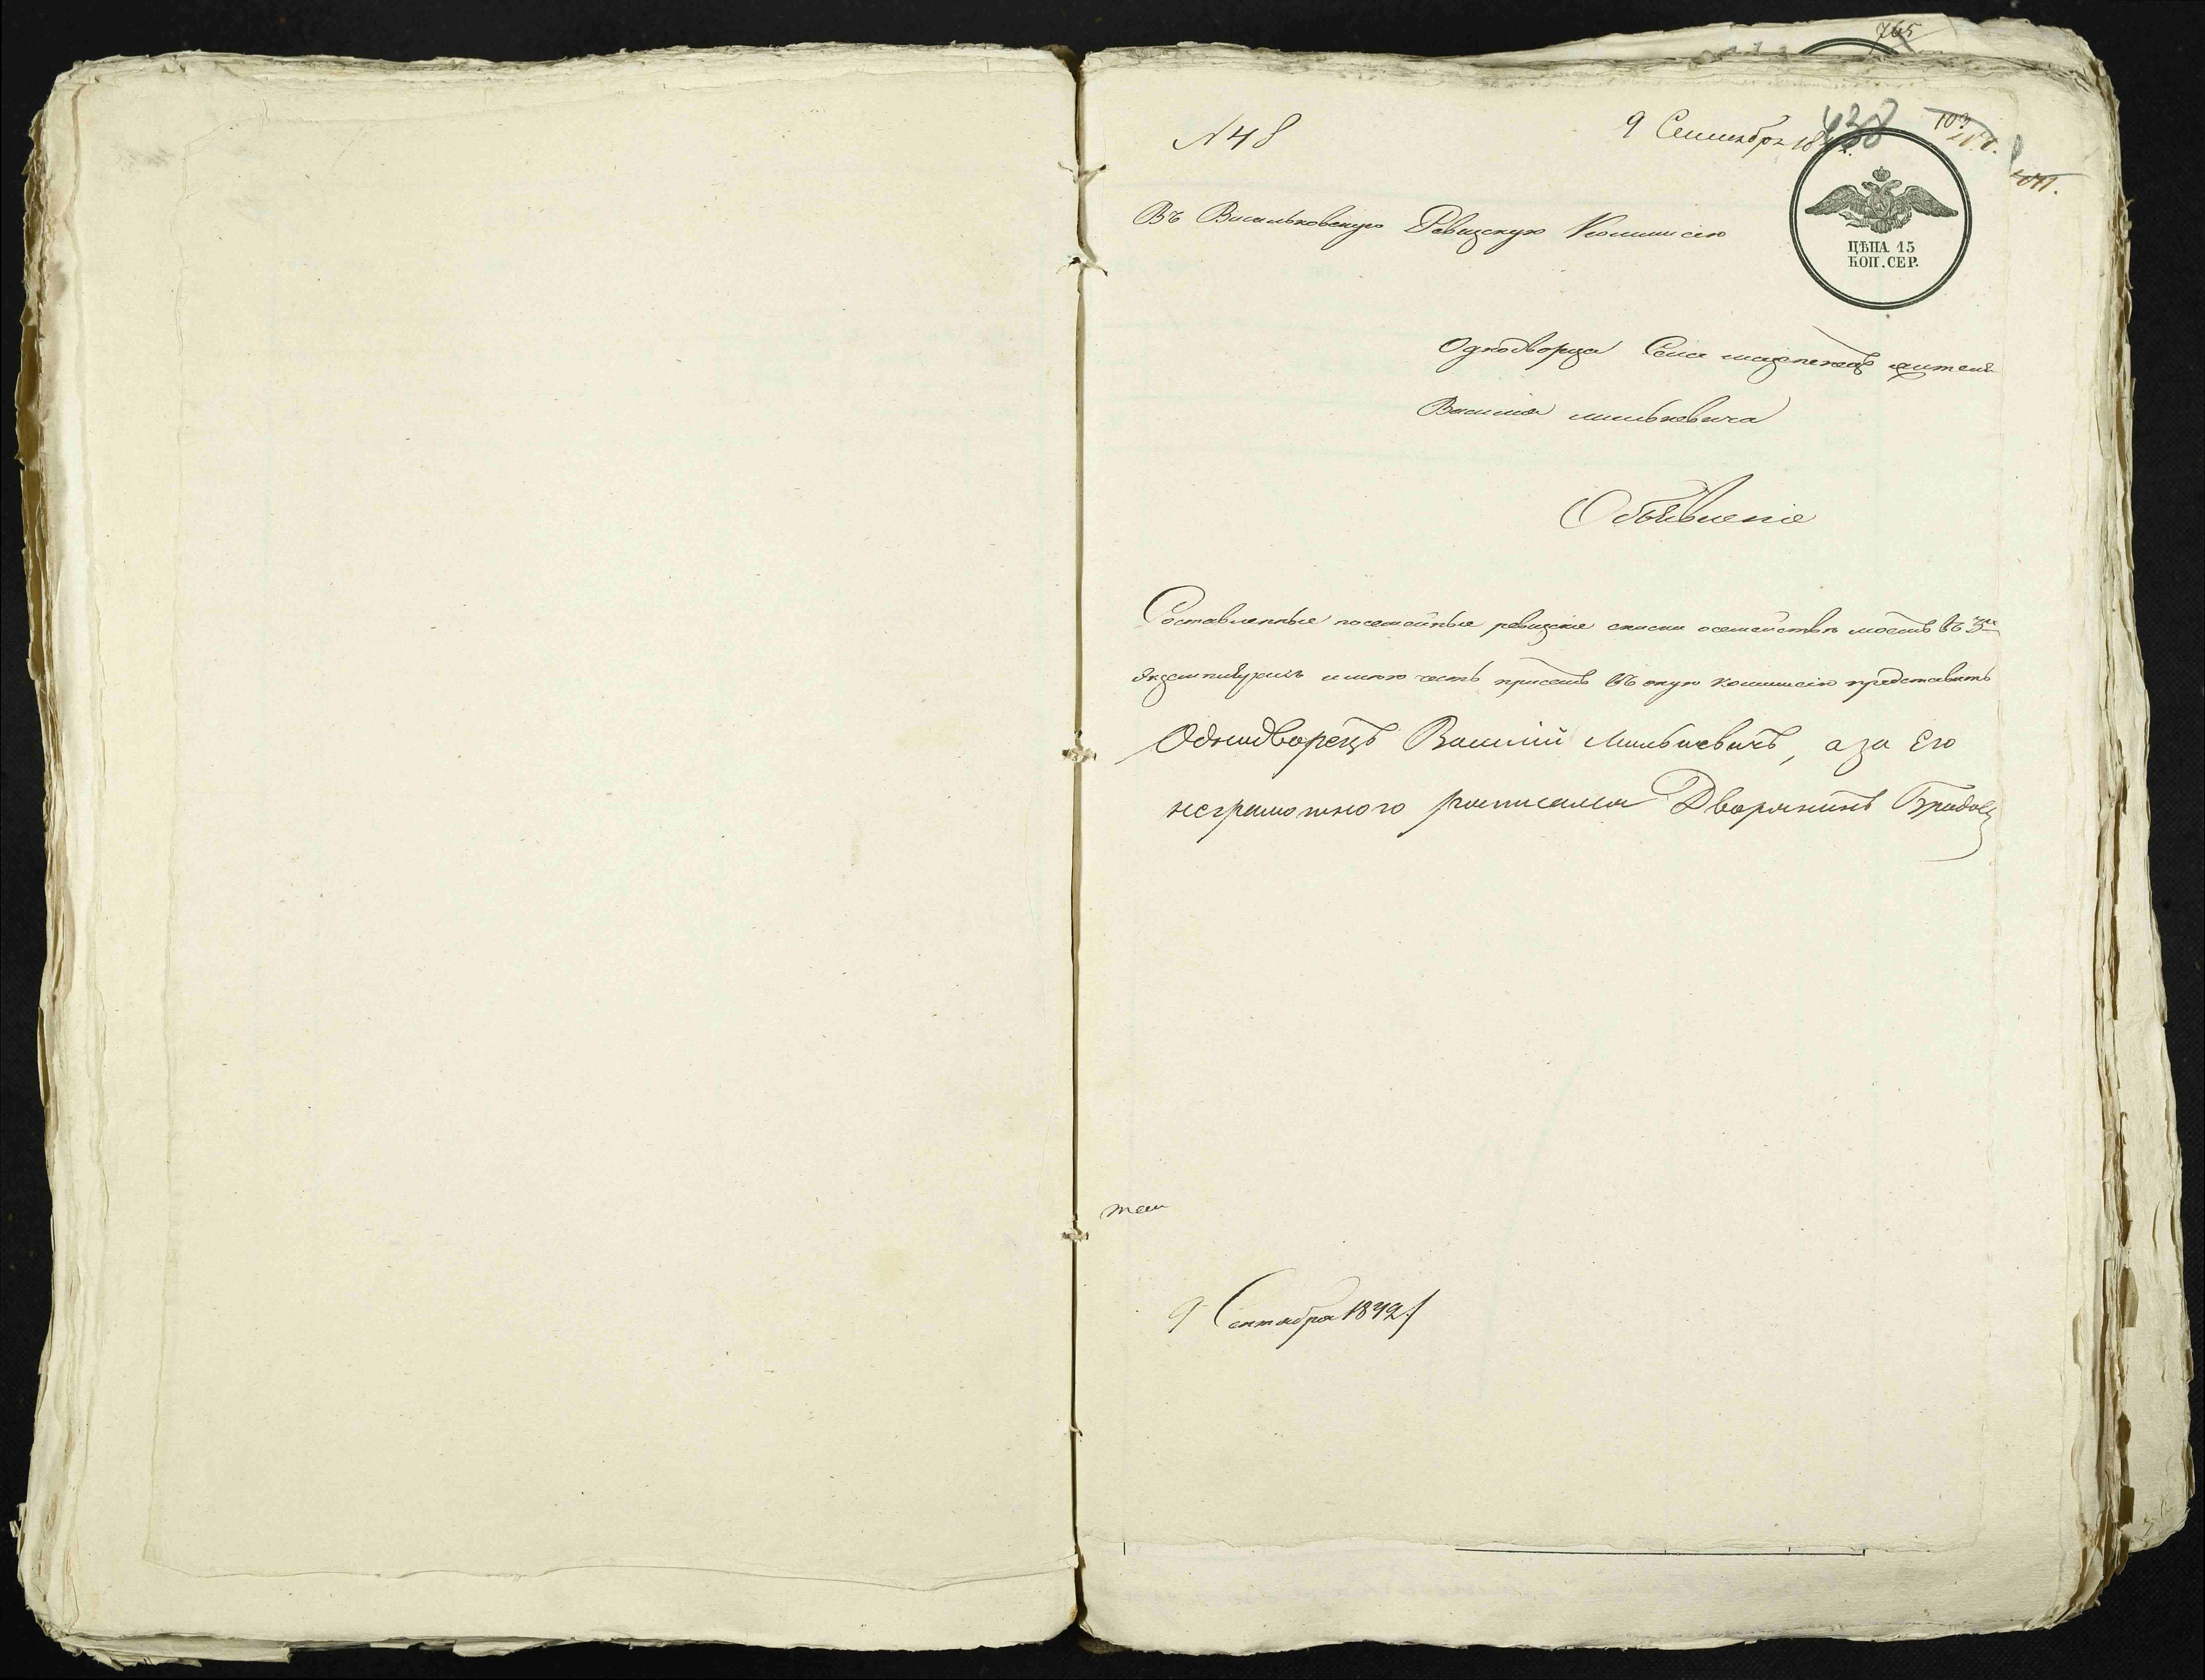 765
N 48
9 Сентября 184
438
103
Въ Васильковскую Ревизскую Коммисію
ЦѢНА 15
КОП. СЕР.
Однодворца Села жителя
Василія Милькевича
Объявленіе
Составленные посемейные ревизскіе списки осемействѣ моемъ въ 3хъ
экземплярахъ имѣю честь присемъ въ оную коммисію представить
Однодворецъ Василій Милькевичъ, а за Его
неграмотного росписался Дворянинъ
9 Сентября 1842